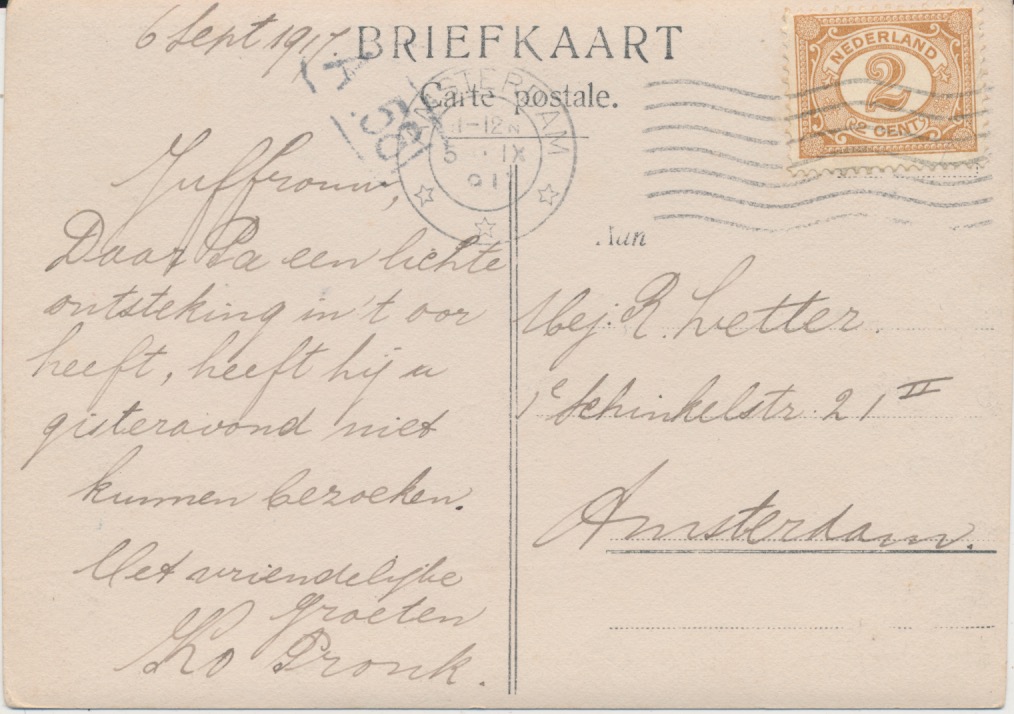 6 Sept 1917.
BRIEFKAART
Carte postale.
AMSTERDAM
11-12 N
5 IX
NEDERLAND
2
2 CENT
Juffrouw,
Daar Pa een lichte
ontsteking in 't oor
heeft, heeft hij u
gisteravond niet
kunnen bezoeken.
Met vriendelijke
groeten
Ko Pronk.
Aan
Mej. R. Letter.
1e Schinkelstr. 21 II
Amsterdam.